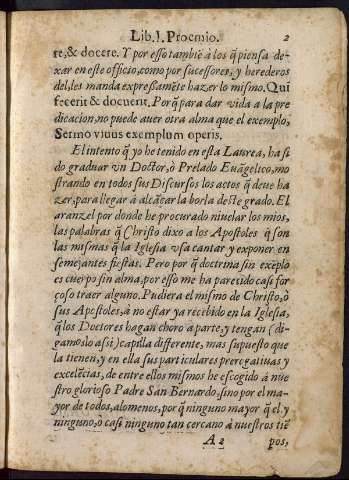 Lib.I. Proemio. 2
re, & docere. Y por esso tambiē à los q̃ piensa de-
xar en este officio, como por sucessores, y herederos
del, les manda expressamẽte hazer lo mismo. Qui
fecerit & docuerit. Porq̃ para dar vida a la pre
dicacion, no puede auer otra alma que el exemplo,
Sermo viuus exemplum operis.
El intento q̃ yo he tenido en esta Laurea, ha si
do graduar vn Doctor, ò Prelado Euãgelico, mo
strando en todos sus Discursos los actos q̃ deue ha
zer, para llegar à alcãçar la borla deste grado. El
aranzel por donde he procurado niuelar los mios,
las palabras q̃ Christo dixo a los Apostoles q̃ son
las mismas q̃ la Iglesia vsa cantar y exponer en
semejantes fiestas. Pero por q̃ doctrina sin exẽplo
es cuerpo sin alma, por esso me ha parecido casi for
çoso traer alguno. Pudiera el mismo de Christo, ò
sus Apostoles, à no estar ya recebido en la Iglesia,
q̃ los Doctores hagan choro a parte, y tengan (di-
gamoslo assi) capilla differente, mas supuesto que
la tienen, y en ella sus particulares prerogatiuas y
excelẽcias, de entre ellos mismos he escogido à nue
stro glorioso Padre San Bernardo, sino por el ma-
yor de todos, alomenos, por q̃ ninguno mayor q̃ el, y
ninguno, ò casi ninguno tan cercano à nuestros tiē
A 2 pos,